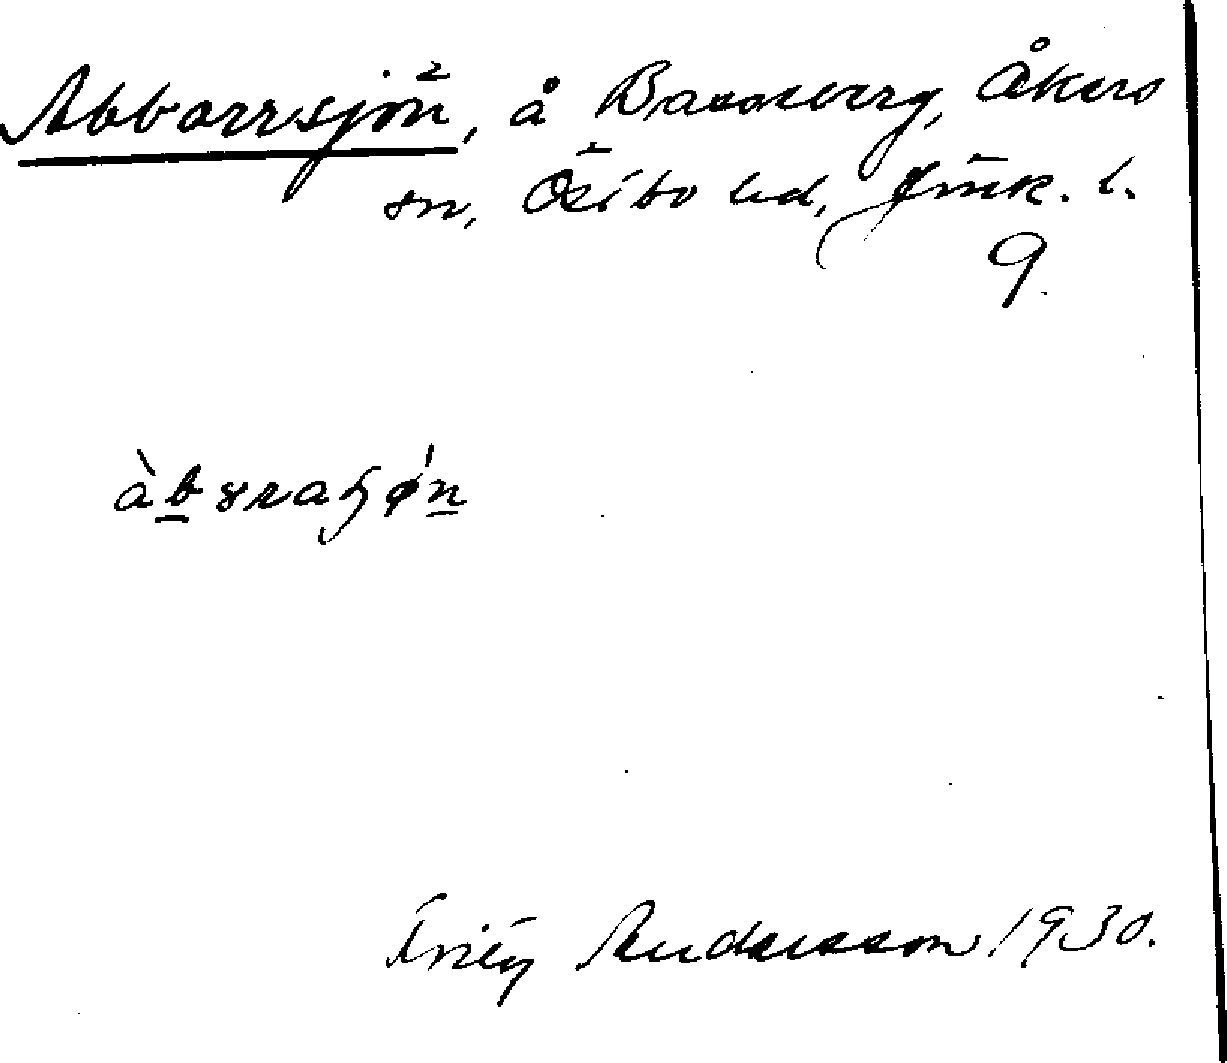 Abborrsjön, å Bassberg, Åkers
sn, Östbo hd, Jmk. l.
9.
àbɤraʃǿn
Fritz Andersson 1930.